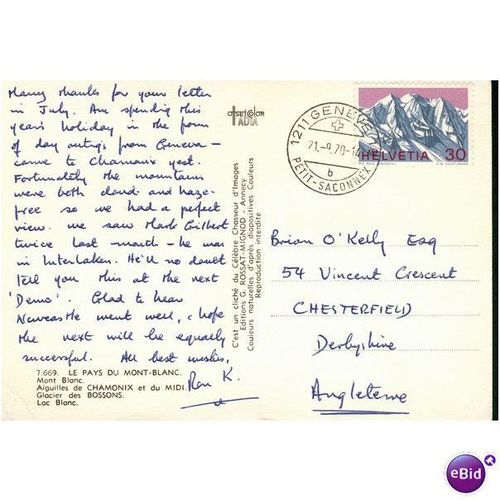 Many thanks for your letter
in July. Am spending this
year's holiday in the form
of day outings from Geneva –
came to Chamonix yest.
Fortunately the mountains
were both cloud- and haze-
free so we had a perfect
view. We saw Mark Gilbert
twice last month – he was
in Interlaken. He'll no doubt
tell you this at the next
'Demo'. Glad to hear
Newcastle went well, & hope
the next will be equally
successful. All best wishes,
Ron K.
7.669. LE PAYS DU MONT-BLANC.
Mont Blanc.
Aiguilles de CHAMONIX et du MIDI
Glacier des BOSSONS.
Lac Blanc.
offset color
ADIA
C'est un cliché du Célèbre Chasseur d'Images
Editions G. ROSSAT-MIGNOD - Annecy
Couleurs naturelles d'après diapositives Couleurs
Reproduction interdite
1211 GENEVE
21.-9.70-1
b
PETIT-SACONNEX
HELVETIA 30
Brian O'Kelly Esq
54 Vincent Crescent
CHESTERFIELD
Derbyshire
Angleterre
eBid